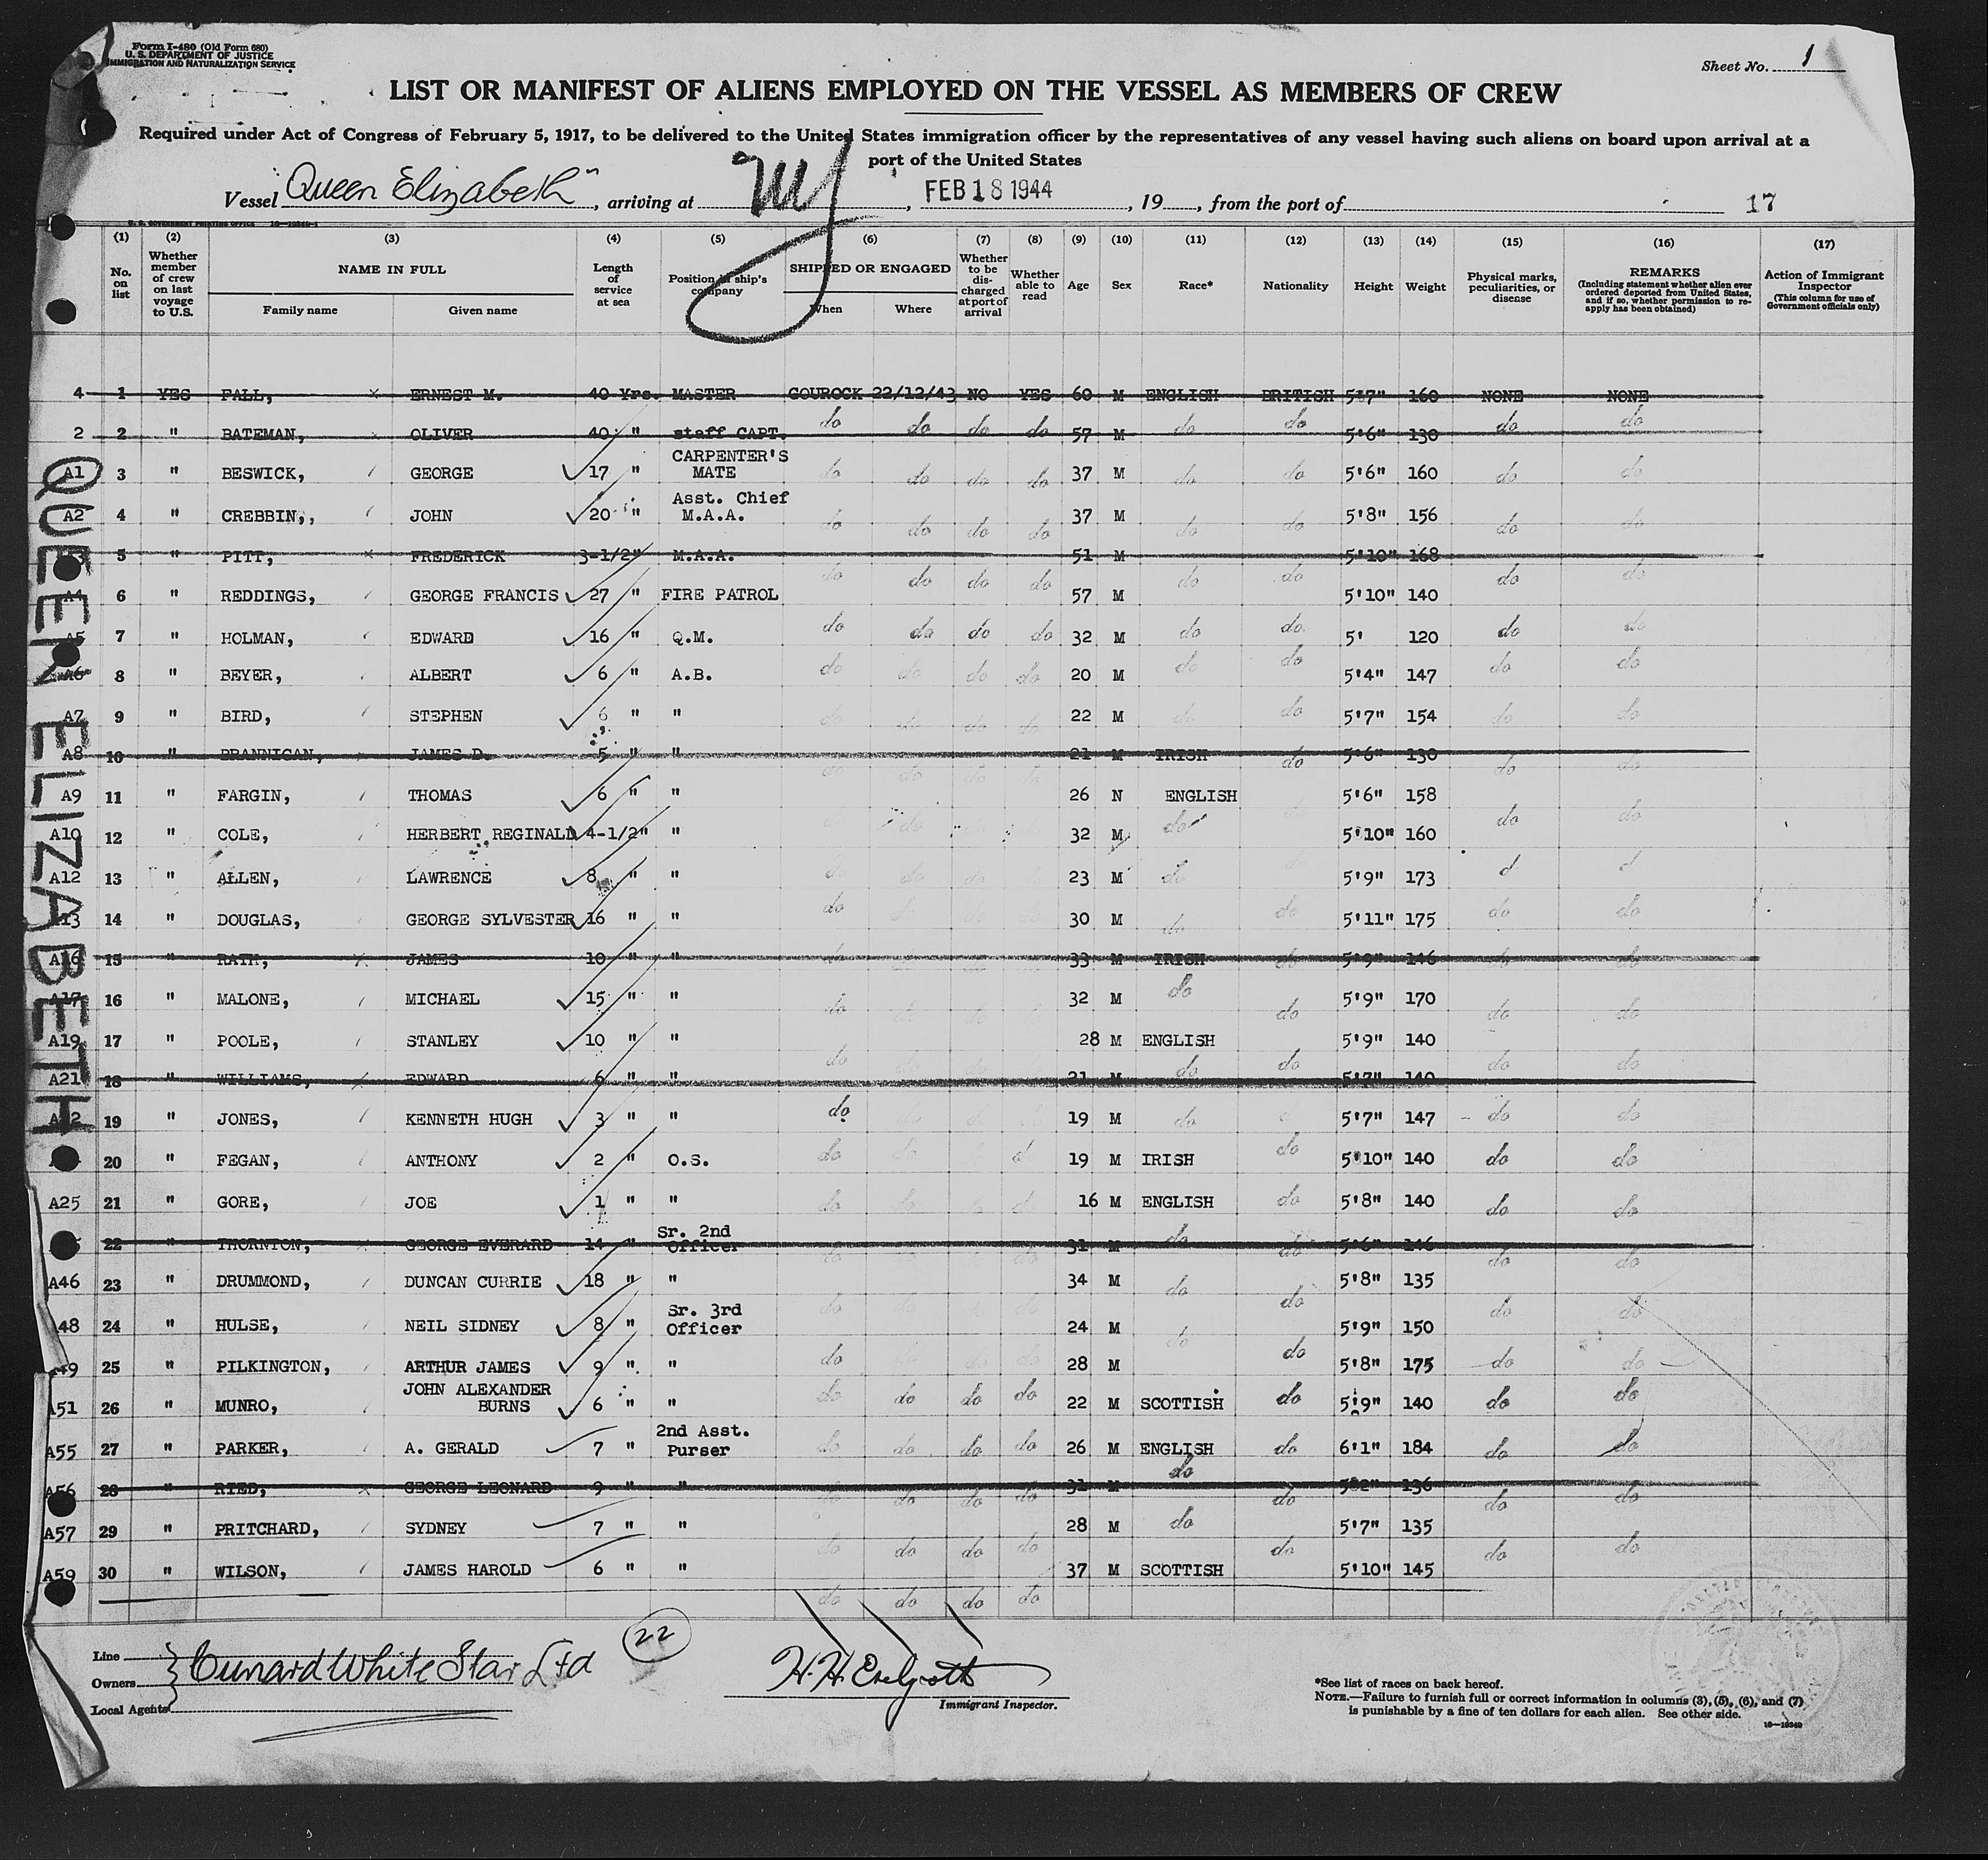 Form I-480 (Old Form 680)
U. S. DEPARTMENT OF JUSTICE
IMMIGRATION AND NATURALIZATION SERVICE
Sheet No. 1
LIST OR MANIFEST OF ALIENS EMPLOYED ON THE VESSEL AS MEMBERS OF CREW
Required under Act of Congress of February 5, 1917, to be delivered to the United States immigration officer by the representatives of any vessel having such aliens on board upon arrival at a
port of the United States
Vessel "Queen Elizabeth", arriving at NY, FEB 18 1944, 19, from the port of 17
U. S. GOVERNMENT PRINTING OFFICE
(1) No. on list
(2) Whether member of crew on last voyage to U.S.
(3) NAME IN FULL Family name Given name
(4) Length of service at sea
(5) Position in ship's company
(6) SHIPPED OR ENGAGED When Where
(7) Whether to be discharged at port of arrival
(8) Whether able to read
(9) Age
(10) Sex
(11) Race*
(12) Nationality
(13) Height
(14) Weight
(15) Physical marks, peculiarities, or disease
(16) REMARKS (Including statement whether alien ever ordered deported from United States, and if so, whether permission to re-apply has been obtained)
(17) Action of Immigrant Inspector (This column for use of Government officials only)
4 1 YES FALL, x ERNEST M. 40 Yrs. MASTER GOUROCK 22/12/43 NO YES 60 M ENGLISH BRITISH 5'7" 160 NONE NONE
2 2 " BATEMAN, x OLIVER 40 " staff CAPT. do do do do 57 M do do 5'6" 130 do do
A1 3 " BESWICK, GEORGE 17 " CARPENTER'S MATE do do do do 37 M do do 5'6" 160 do do
A2 4 " CREBBIN,, JOHN 20 " Asst. Chief M.A.A. do do do do 37 M do do 5'8" 156 do do
5 " PITT, x FREDERICK 3-1/2" M.A.A. do do do do 51 M do do 5'10" 168 do do
A4 6 " REDDINGS, GEORGE FRANCIS 27 " FIRE PATROL do do do do 57 M do do 5'10" 140 do do
A5 7 " HOLMAN, EDWARD 16 " Q.M. do do do do 32 M do do 5' 120 do do
A6 8 " BEYER, ALBERT 6 " A.B. do do do do 20 M do do 5'4" 147 do do
A7 9 " BIRD, STEPHEN 6 " " do do do do 22 M do do 5'7" 154 do do
A8 10 " BRANNIGAN, x JAMES D. 5 " " do do do do 21 M IRISH do 5'6" 130 do do
A9 11 " FARGIN, THOMAS 6 " " 26 N ENGLISH 5'6" 158 do do
A10 12 " COLE, HERBERT REGINALD 4-1/2" " 32 M do 5'10" 160
A12 13 " ALLEN, LAWRENCE 8 " " do do do 23 M do 5'9" 173 d d
A13 14 " DOUGLAS, GEORGE SYLVESTER 16 " " do 30 M do do 5'11" 175 do do
A16 15 " RATH, x JAMES 10 " " 33 M IRISH do 5'9" 146 do do
A17 16 " MALONE, MICHAEL 15 " " do 32 M do do 5'9" 170 do do
A19 17 " POOLE, STANLEY 10 " " do 28 M ENGLISH do 5'9" 140 do do
A21 18 " WILLIAMS, x EDWARD 6 " " 21 M do do 5'7" 140 do do
19 " JONES, KENNETH HUGH 3 " " do 19 M do 5'7" 147 do do
20 " FEGAN, ANTHONY 2 " O.S. do do d 19 M IRISH do 5'10" 140 do do
A25 21 " GORE, JOE 1 " " do do d 16 M ENGLISH do 5'8" 140 do do
22 " THORNTON, x GEORGE EVERARD 14 " Sr. 2nd Officer do do do 31 M do do 5'6" 146 do do
A46 23 " DRUMMOND, DUNCAN CURRIE 18 " " do do do 34 M do do 5'8" 135 do do
A48 24 " HULSE, NEIL SIDNEY 8 " Sr. 3rd Officer 24 M do do 5'9" 150
A49 25 " PILKINGTON, ARTHUR JAMES 9 " " do 28 M 5'8" 175 do do
A51 26 " MUNRO, JOHN ALEXANDER BURNS 6 " " do do do do 22 M SCOTTISH do 5'9" 140 do do
A55 27 " PARKER, A. GERALD 7 " 2nd Asst. Purser do do do do 26 M ENGLISH do 6'1" 184 do do
A56 28 " RIED, x GEORGE LEONARD 9 " " do do do do 31 M do do 5'2" 136 do do
A57 29 " PRITCHARD, SYDNEY 7 " " do do do do 28 M do do 5'7" 135 do do
A59 30 " WILSON, JAMES HAROLD 6 " " do do do do 37 M SCOTTISH 5'10" 145
QUEEN ELIZABETH
22
Line
Owners Cunard White Star Ltd
Local Agents
Immigrant Inspector.
*See list of races on back hereof.
NOTE.—Failure to furnish full or correct information in columns (3), (5), (6), and (7)
is punishable by a fine of ten dollars for each alien. See other side.